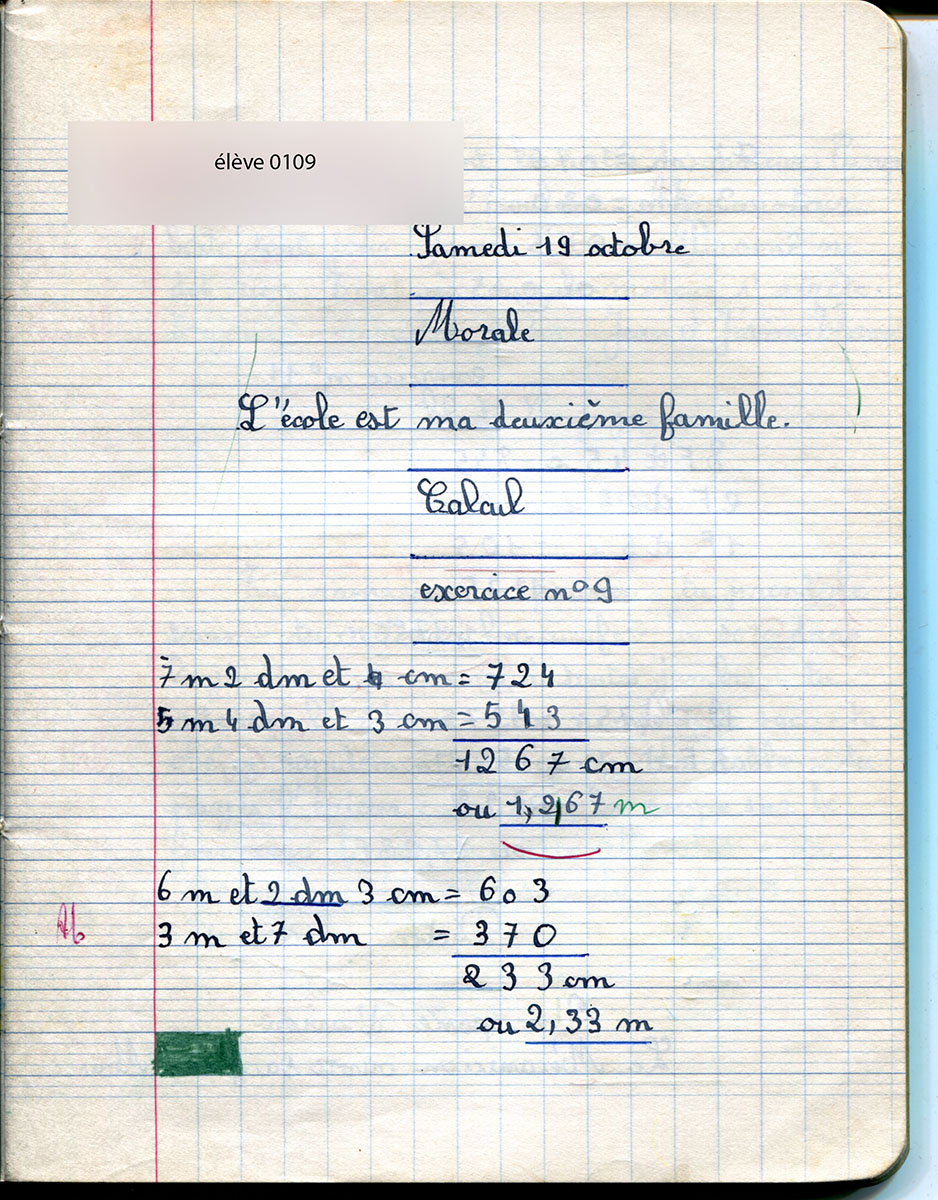 élève 0109
Samedi 19 octobre
Morale
L'école est ma deuxième famille.
Calcul
exercice n° 9
7 m 2 dm et 4 cm = 724
5 m 4 dm et 3 cm = 543
1267 cm
ou 1,2,67 m
6 m et 2 dm 3 cm = 603
3 m et 7 dm = 370
233 cm
ou 2,33 m